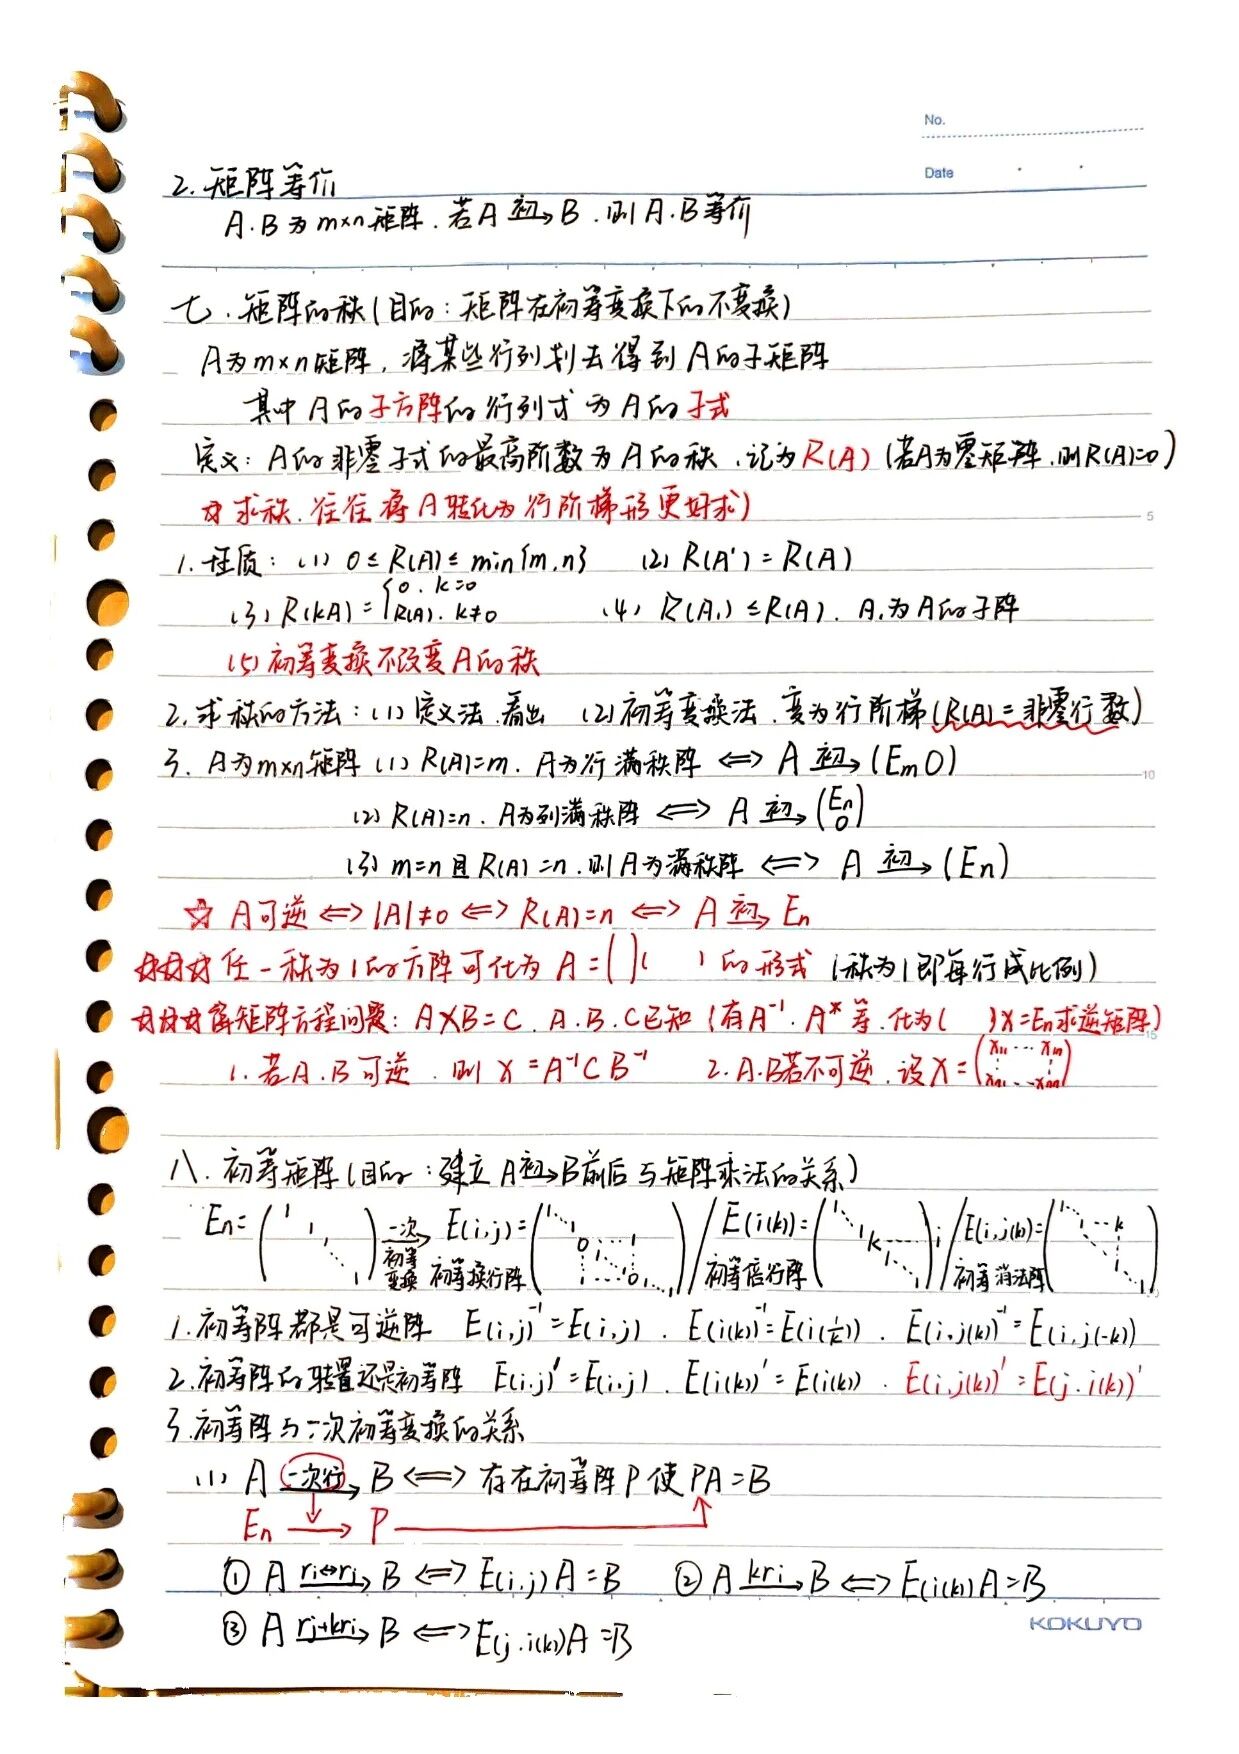 No.
Date
2. 矩阵等价
A.B为m×n矩阵.若A 初→ B.则A.B等价
七.矩阵的秩(目的:矩阵在初等变换下的不变换)
A为m×n矩阵,将某些行列划去得到A的子矩阵
其中A的子方阵的行列式为A的子式
定义:A的非零子式的最高阶数为A的秩.记为R(A)(若A为零矩阵.则R(A)=0)
☆求秩.往往将A转化为行阶梯形更好求)
5
1.性质:(1) 0≤R(A)≤min{m.n} (2) R(A')=R(A)
(3) R(kA)={0. k=0 R(A). k≠0 (4) R(A₁)≤R(A). A₁为A的子阵
(5)初等变换不改变A的秩
2.求秩的方法:(1)定义法.看出 (2)初等变换法.变为行阶梯(R(A)=非零行数)
3. A为m×n矩阵 (1) R(A)=m. A为行满秩阵 ⟺ A 初→ (Em 0)
10
(2) R(A)=n. A为列满秩阵 ⟺ A 初→ (En 0)
(3) m=n且R(A)=n.则A为满秩阵 ⟺ A 初→ (En)
☆ A可逆⟺|A|≠0⟺R(A)=n⟺A 初→ En
☆☆☆任一秩为1的方阵可化为A=( )( )的形式(秩为1即每行成比例)
☆☆☆解矩阵方程问题:AXB=C.A.B.C已知(有A⁻¹.A*等.化为( )X=En求逆矩阵)
15
1.若A.B可逆.则X=A⁻¹CB⁻¹ 2.A.B若不可逆.设X=(x₁₁…x₁n ⋮ ⋮ xn₁…xnn)
八.初等矩阵(目的:建立A初→B前后与矩阵乘法的关系)
En=(1 1 ⋱ 1) 一次→初等变换 E(i,j)=(1 ⋱ 0…1 ⋮ ⋱ ⋮ 1…0 ⋱ 1) / E(i(k))=(1 ⋱ 1 k 1 ⋱ 1); / E(i,j(k))=(1 ⋱ 1…k ⋱ ⋮ 1 ⋱ 1)
初等换行阵 初等倍行阵 初等消法阵
1.初等阵都是可逆阵 E(i,j)⁻¹=E(i,j). E(i(k))⁻¹=E(i(1/k)). E(i,j(k))⁻¹=E(i,j(-k))
2.初等阵的转置还是初等阵 E(i.j)'=E(i,j). E(i(k))'=E(i(k)). E(i,j(k))'=E(j.i(k))'
3.初等阵与一次初等变换的关系
(1) A 一次行→ B ⟺ 存在初等阵P使PA=B
En → P
① A ri↔rj→ B ⟺ E(i,j)A=B ② A kri→ B ⟺ E(i(k))A=B
③ A rj+kri→ B ⟺ E(j.i(k))A=B
KOKUYO